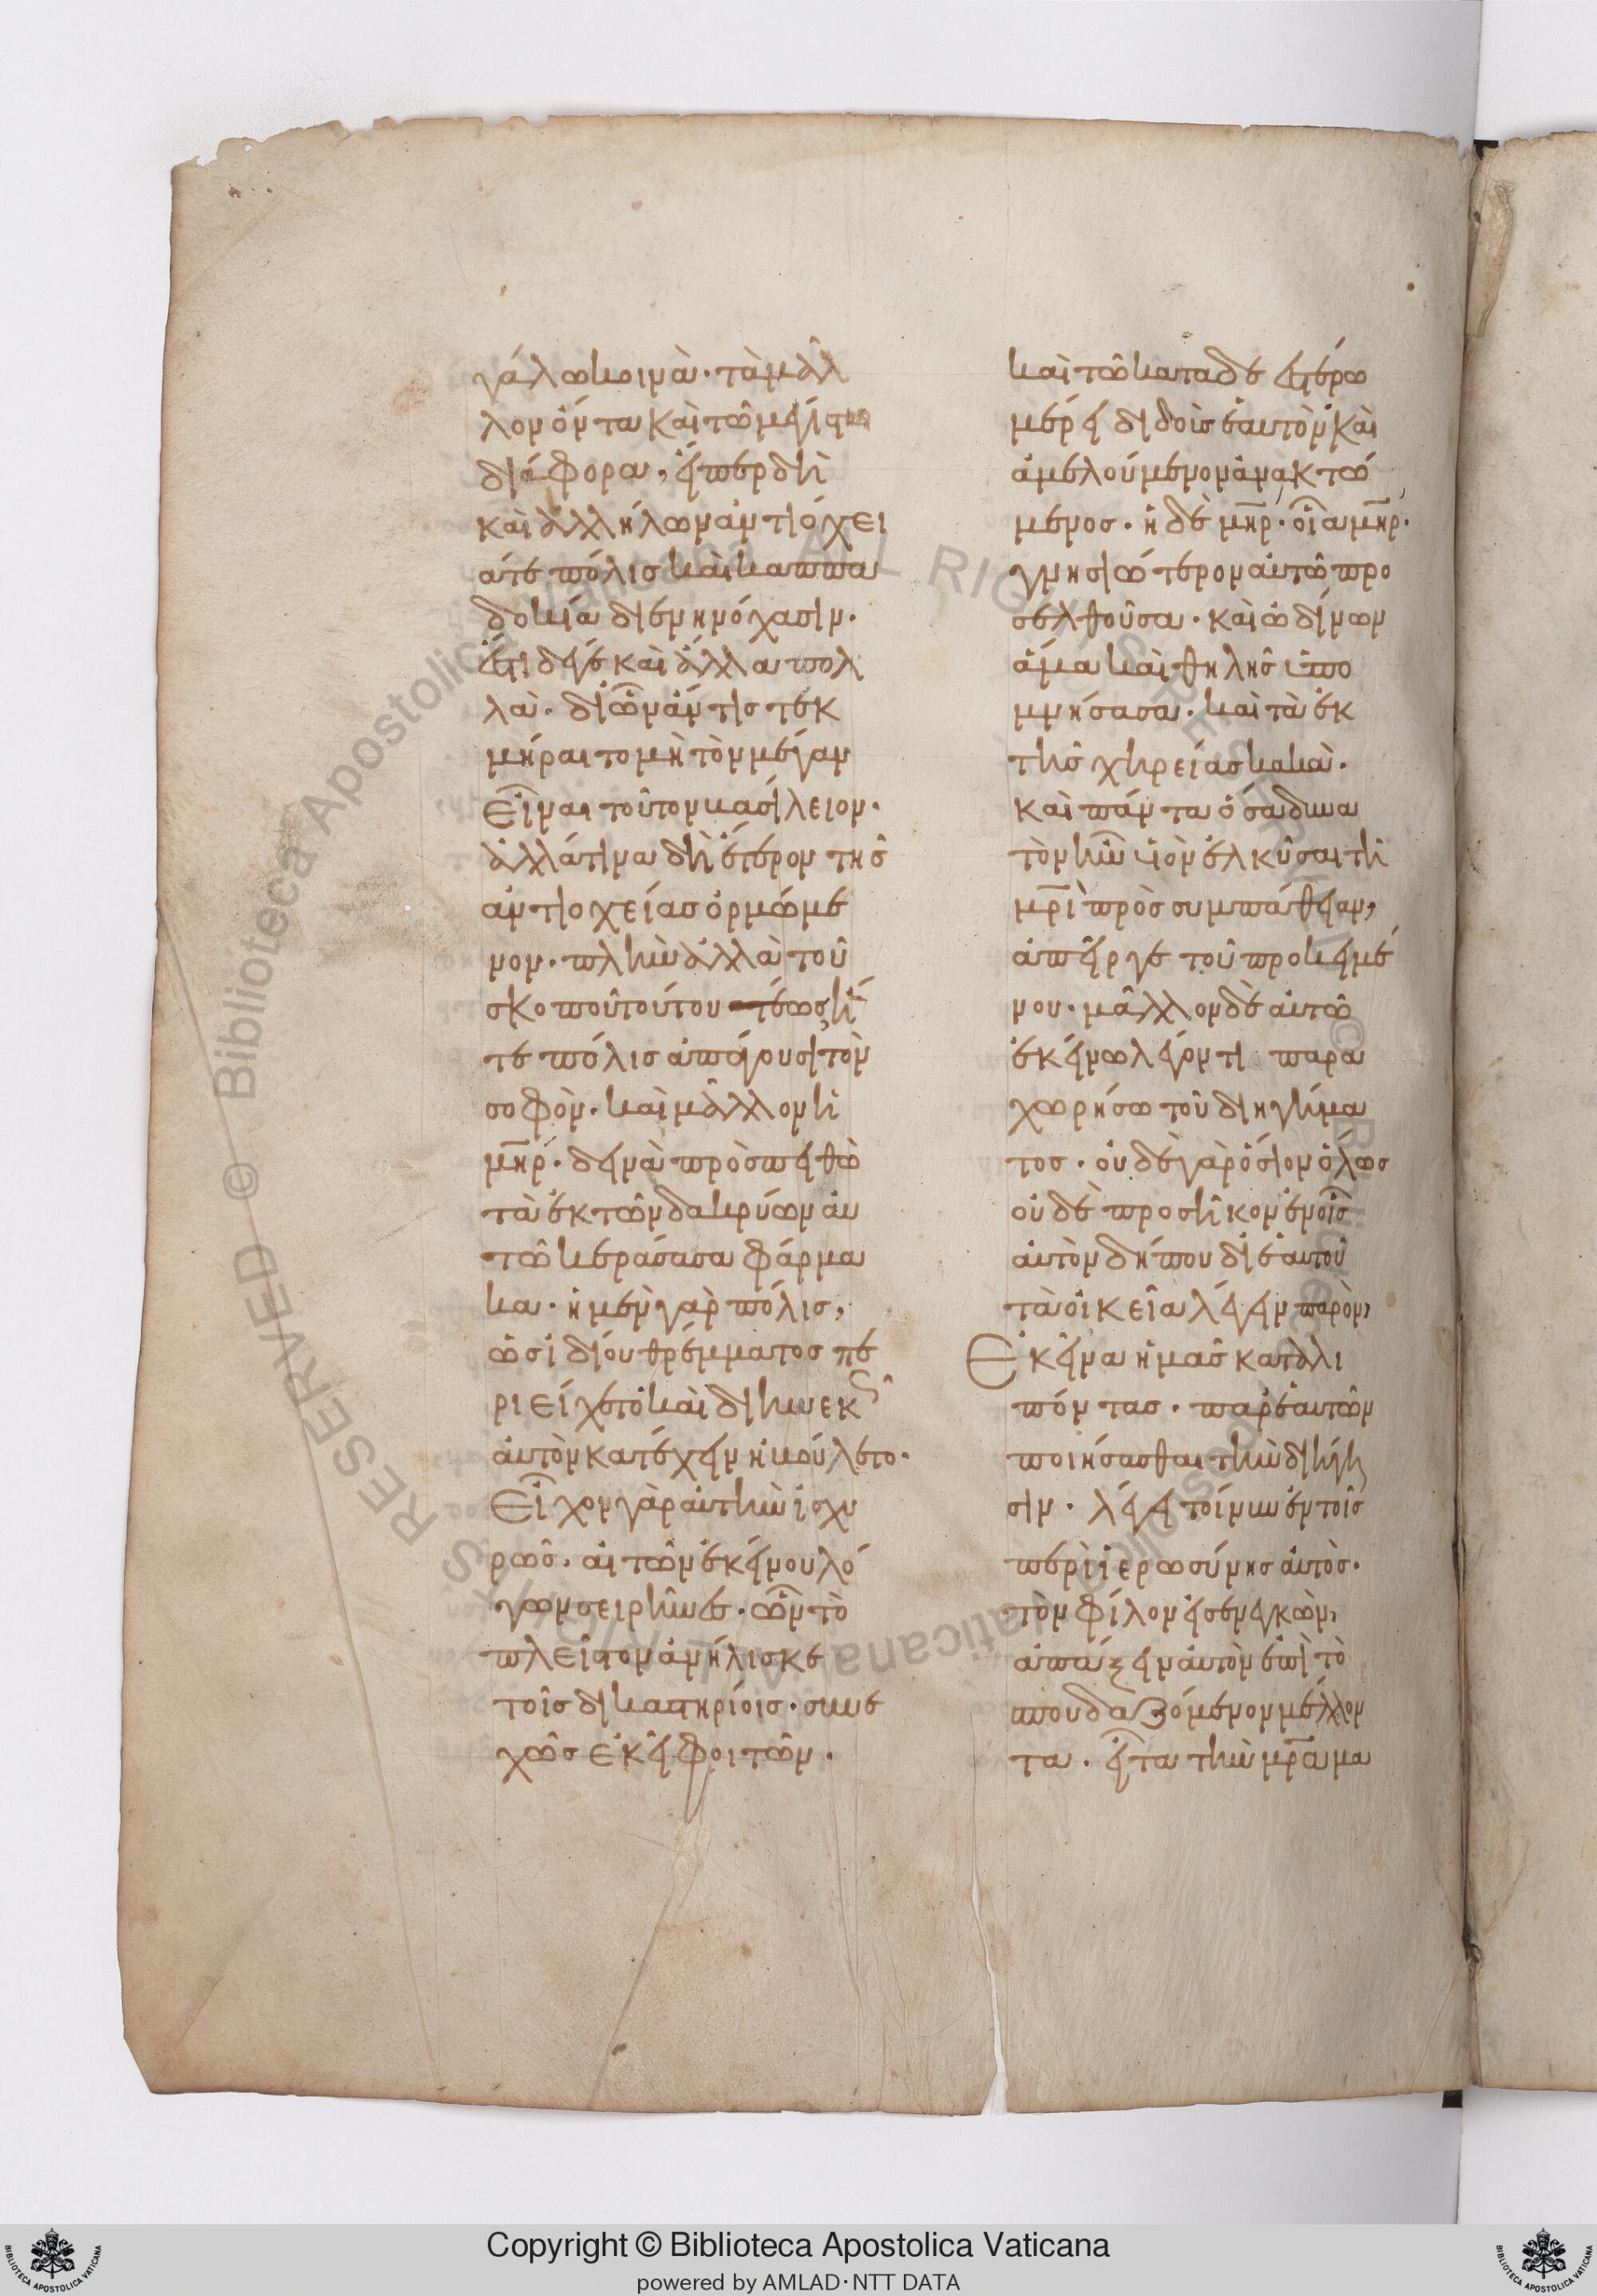 γάλω κοινὰ· τὰ μᾶλ
λον ὄντα καὶ τῶ μεγίστω
διάφορα, εἴπερ δὴ
καὶ ἀλλήλων ἀντιόχει
ά τε πόλις καὶ καππα
δοκία διενηνόχασιν·
ἔτι δέ γε καὶ ἄλλα πολ
λὰ· δι ὧν ἄν τις τεκ
μήραιτο μὴ τὸν μέγαν
εἶναι τοῦτον βασίλειον·
ἀλλά τινα δὴ ἕτερον τῆς
ἀντιοχείας ὁρμώμε
νον· πλὴν ἀλλὰ τοῦ
σκοποῦ τούτου τέως ἥ
τε πόλις ἀπάγουσι τὸν
σοφὸν· καὶ μᾶλλον ἡ
μηρ· δεινὰ πρὸς πειθὼ
τὰ ἐκ τῶν δακρύων αὐ
τῶ κεράσασα φάρμα
κα· ἡ μὲν γὰρ πόλις,
ὡς ἰδίου θρέμματος πε
ριείχετο καὶ διηνεκῶς
αὐτὸν κατέχειν ἠβούλετο·
εἶχον γὰρ αὐτὴν ἰσχυ
ρῶς· αἱ τῶν ἐκείνου λό
γων σειρῆνες· ὧν τὸ
πλεῖστον ἀνήλισκε
τοῖς δικαστηρίοις· συνε
χῶς ἐκεῖ φοιτῶν·
καὶ τῶ κατα δε ἑτέρω
μέρει διδοὺς ἑαυτὸν καὶ
ἀμελούμενον ἀνακτώ
μενος· ἡ δὲ μηρ· οἷα μηρ·
γνησιώτερον αὐτῶ προ
σελθοῦσα· καὶ ὠδίνων
ἅμα καὶ θηλῆς ὑπο
μνήσασα· καὶ τὰ ἐκ
τῆς χηρείας κακὰ·
καὶ πάντα ὅσα δυνα
τὸν ἦν υἱὸν ἑλκῦσαι τῆ
μρὶ πρὸς συμπάθειαν,
ἀπεῖργε τοῦ προκειμέ
νου· μᾶλλον δὲ αὐτῶ
ἐκείνω λέγοντι παρα
χωρήσω τοῦ διηγήμα
τος· οὐδὲ γὰρ ὅσιον ὅλως
οὐδὲ προσῆκον ἐμοῖς
αὐτὸν δήπου δι ἑαυτοῦ
τὰ οἰκεῖα λέγειν παρὸν,
Ἐκεῖνα ἡμᾶς καταλι
πόντας· παρ ἑαυτῶν
ποιήσασθαι τὴν διήγη
σιν· λέγει τοίνυν ἐν τοῖς
περὶ ἱερωσύνης αὐτὸς·
τὸν φίλον εἰσενεγκὼν,
ἀπάξειν αὐτὸν ἐπὶ τὸ
σπουδαζόμενον μέλλον
τα· εἶτα τὴν μρα μα